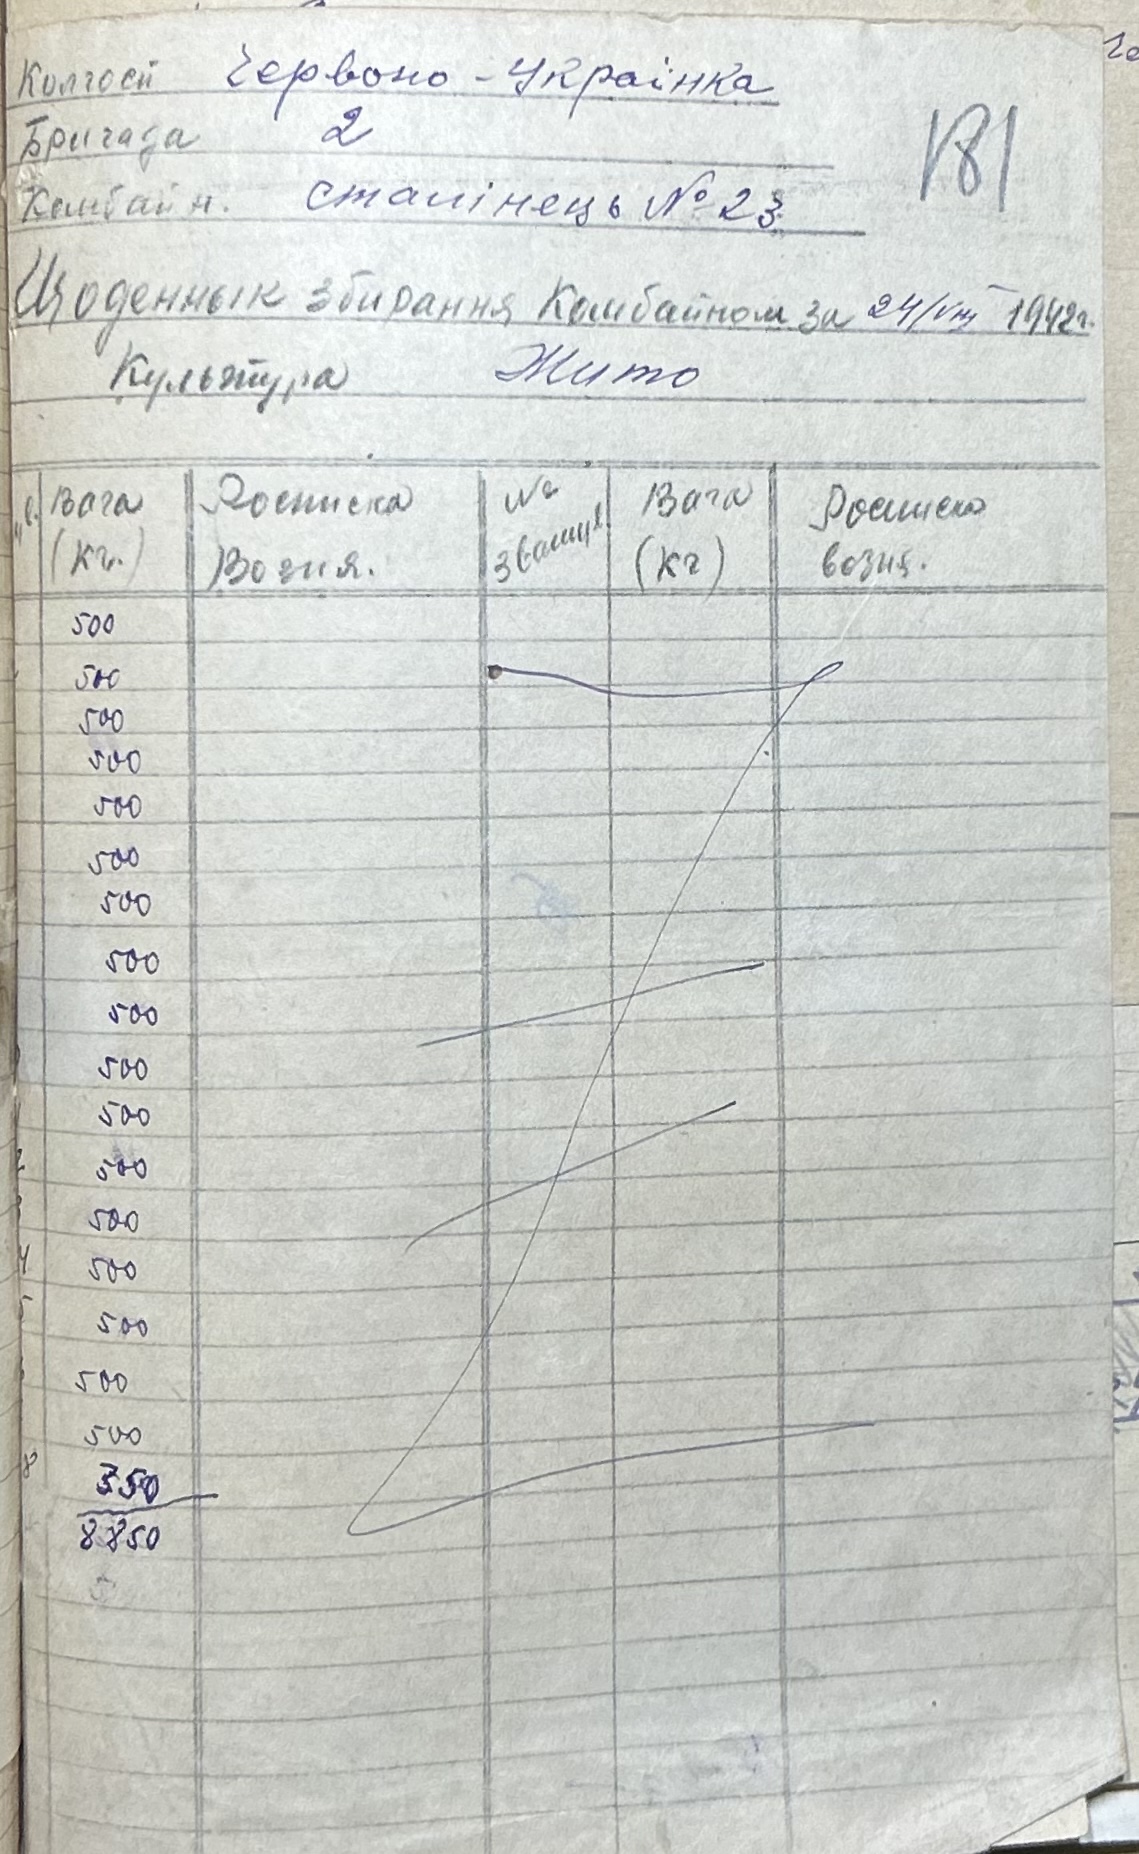 Колгосп Червоно-Українка
Бригада 2
181
Комбайн. Сталінець № 23
Щоденнык збирання Комбайном за 24/VIII 1942г.
Культура Жито
Вага (кг.) Росписка Возия. № звалиця Вага (кг) Росписка возия.
500
500
500
500
500
500
500
500
500
500
500
500
500
4 500
5 500
500
500
8 350
8850